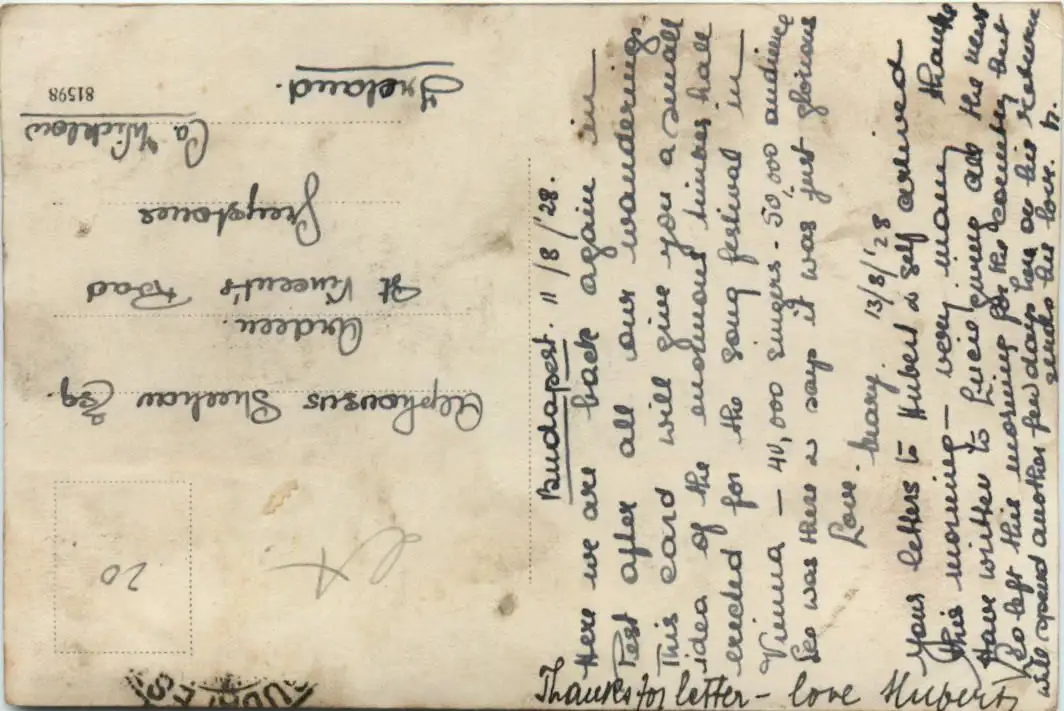 Budapest. 11/8/'28.
Here we are back again in
Pest after all our wanderings
This card will give you a small
idea of the enormous timber hall
erected for the song festival in
Vienna — 40,000 singers - 50,000 audience
Leo was there & says it was just glorious
Love. Mary. 13/8/'28
Your letters to Hubert & self arrived
this morning — very many thanks
Have written to Lucie giving all the news
Leo left this morning for the country but
will spend another few days here on his return
sends his love to
Thanks for letter – love Hubert
Alphonsus Sheehan Esq
Ardeen.
St Vincent's Road
Greystones
Co. Wicklow
Ireland.
81598
20